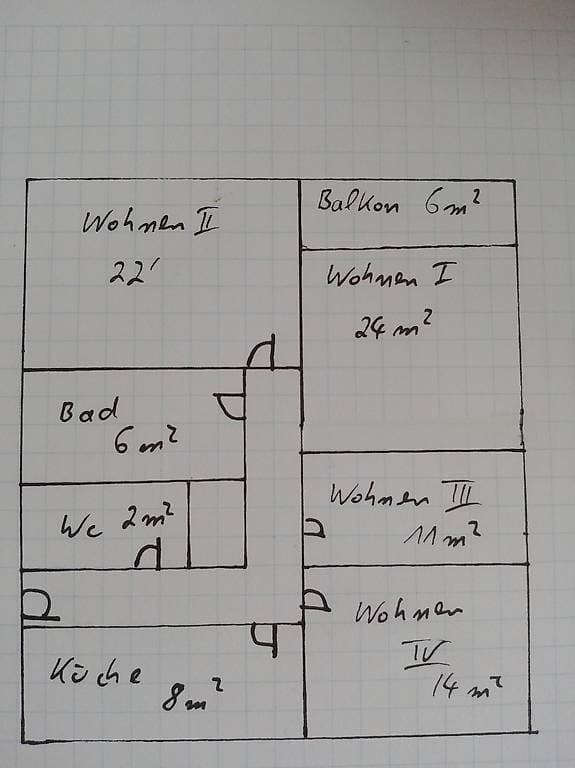 Wohnen II
22'
Balkon 6m²
Wohnen I
24 m²
Bad
6 m²
Wc 2m²
Wohnen III
11 m²
Wohnen
IV
14 m²
Küche
8m²